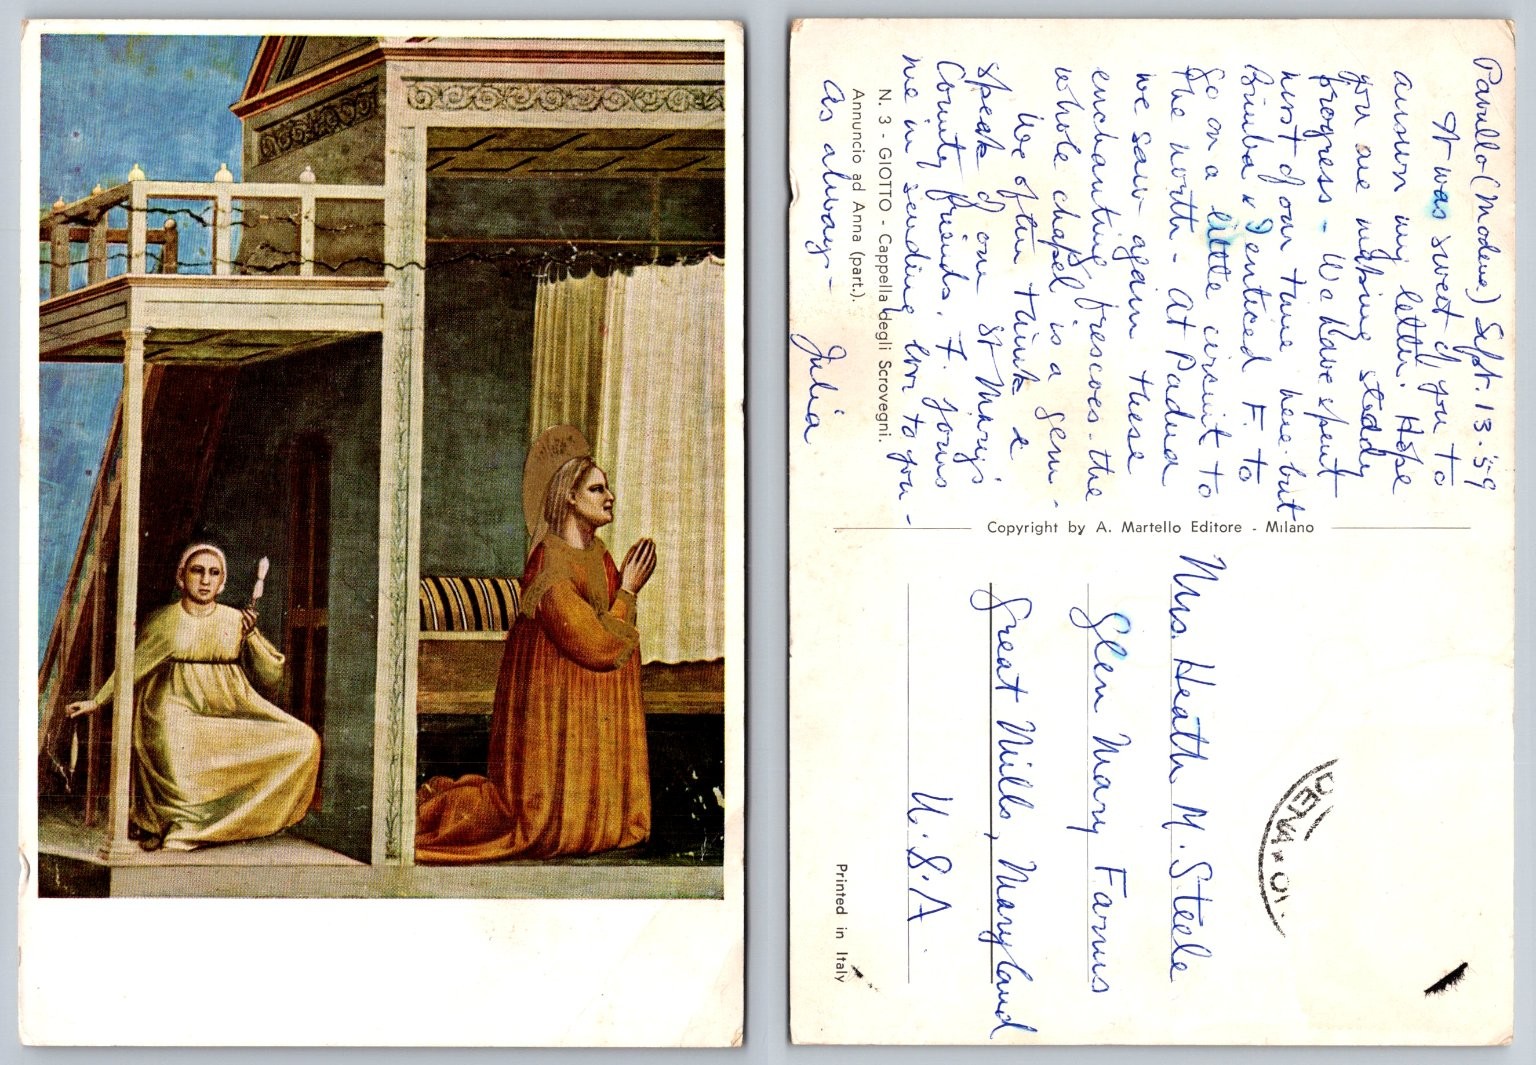 Pavullo (Modena) Sept. 13. '59
It was sweet of you to
answer my letter. Hope
you are making steady
progress - We have spent
most of our time here but
Bimba & I enticed F. to
go on a little circuit to
the north - At Padua
we saw again these
enchanting frescoes - the
whole chapel is a gem -
We often think &
speak of our St Mary's
County friends. F. joins
me in sending love to you -
As always -
Julia
N. 3 - GIOTTO - Cappella degli Scrovegni.
Annuncio ad Anna (part.).
Copyright by A. Martello Editore - Milano
Mrs. Heath M. Steele
Glen Mary Farms
Great Mills, Maryland
U.S.A.
Printed in Italy